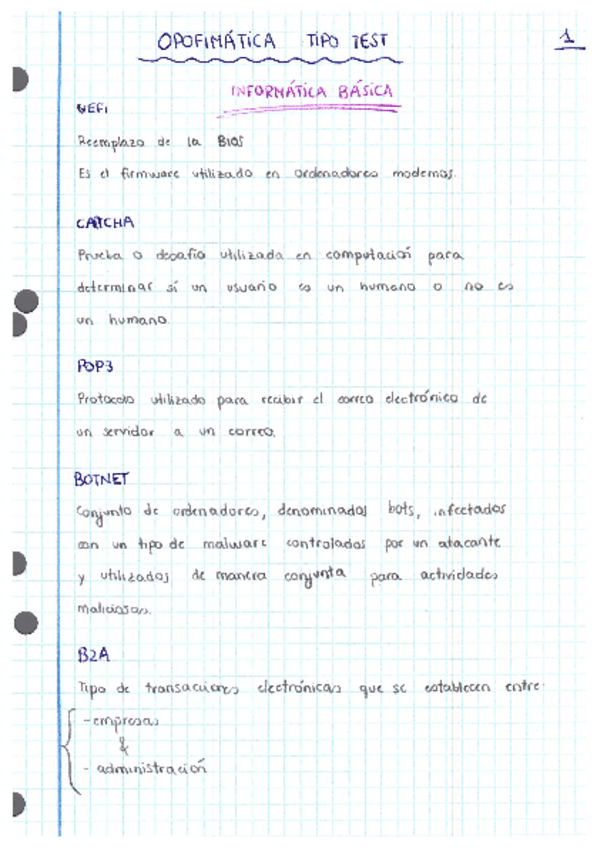 OPOFIMÁTICA TIPO TEST
1
INFORMÁTICA BÁSICA
UEFI
Reemplazo de la BIOS
Es el firmware utilizado en ordenadores modernos.
CATCHA
Prueba o desafío utilizada en computación para
determinar sí un usuario es un humano o no es
un humano.
POP3
Protocolo utilizado para recibir el correo electrónico de
un servidor a un correo.
BOTNET
Conjunto de ordenadores, denominados bots, infectados
con un tipo de malware controlados por un atacante
y utilizados de manera conjunta para actividades
maliciosas.
B2A
Tipo de transacciones electrónicas que se establecen entre:
- empresas
&
- administración